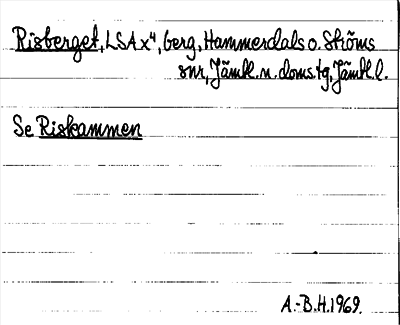 Risberget, LSA x⁴, berg, Hammerdals o. Ströms
snr, Jämtl. n. doms. tg, Jämtl. l.
Se Riskammen
A.-B.H. 1969.